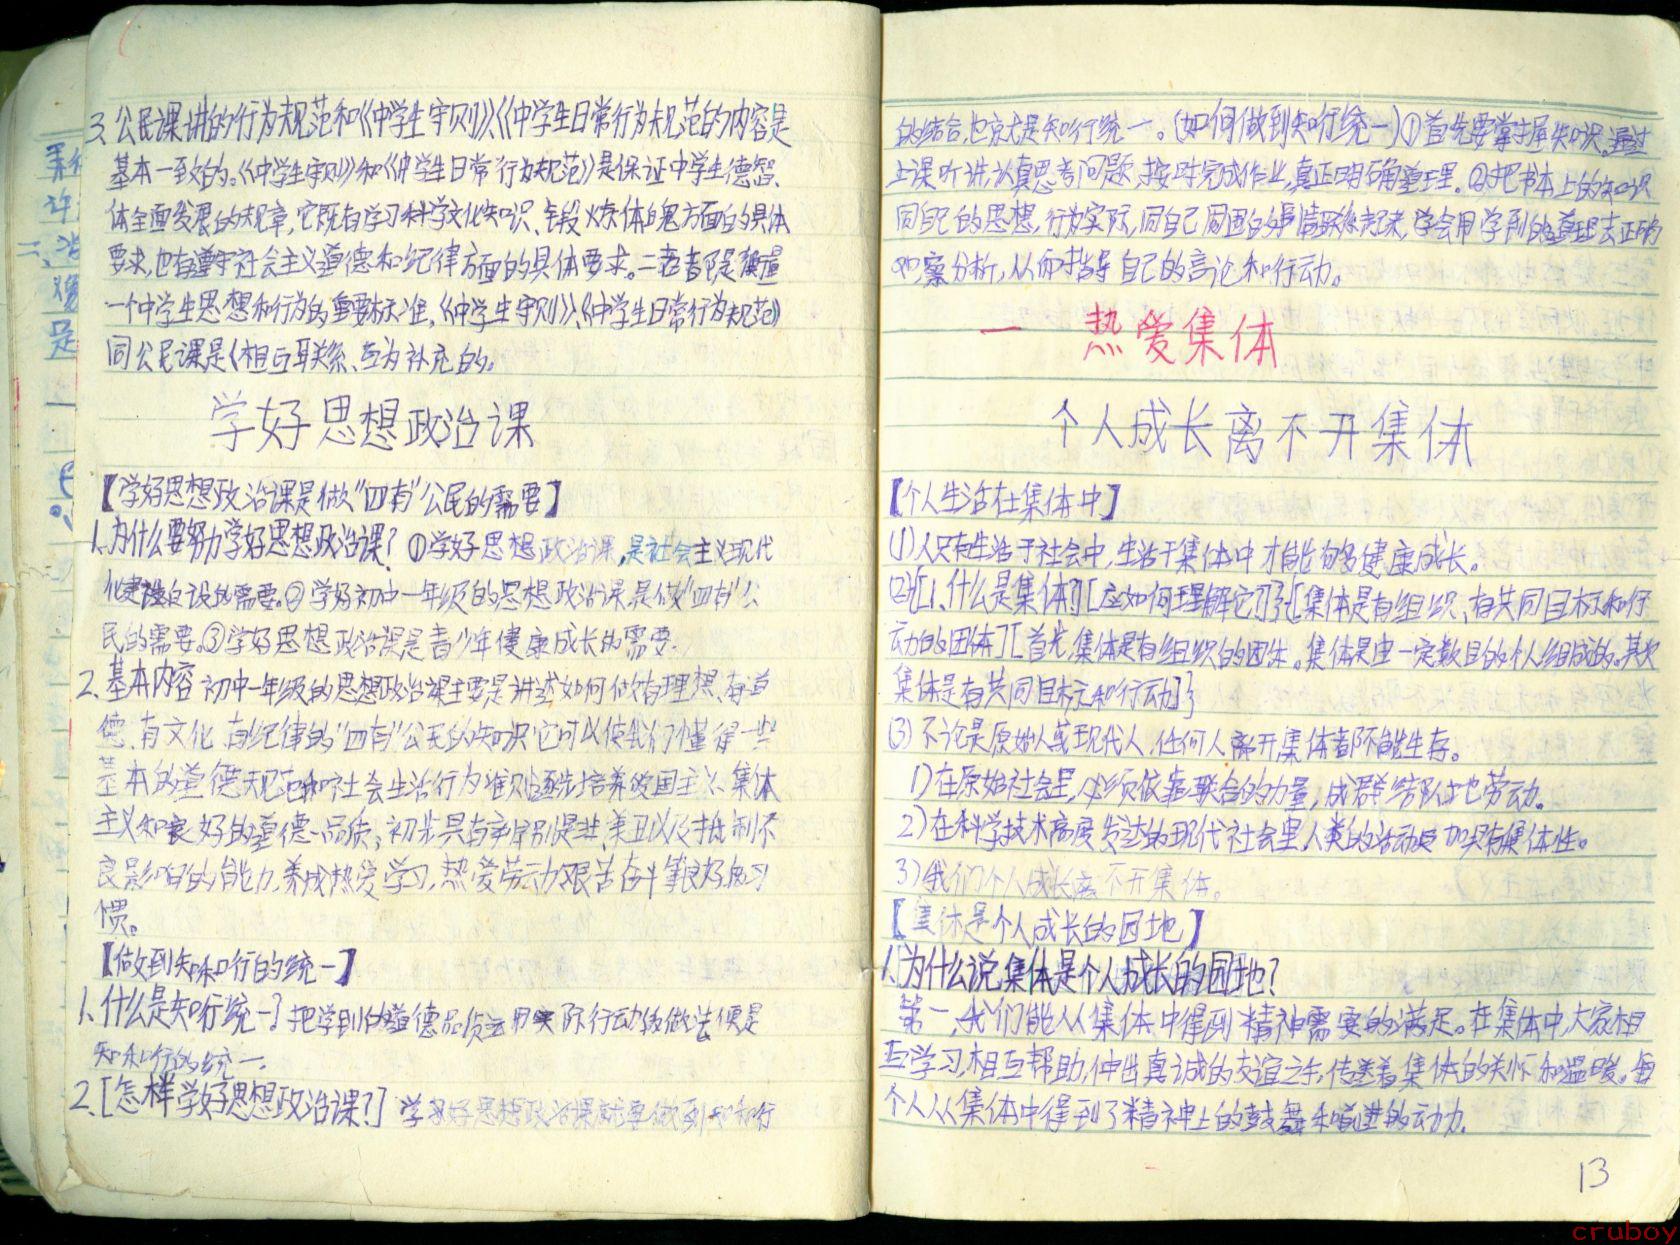 3、公民课讲的行为规范和《中学生守则》、《中学生日常行为规范的内容是
基本一致的。《中学生守则》和《中学生日常行为规范》是保证中学生德智、
体全面发展的规章，它既有学习科学文化知识、锻炼体魄方面的具体
要求，也有遵守社会主义道德和纪律方面的具体要求。二者都是衡量
一个中学生思想和行为的重要标准、《中学生守则》、《中学生日常行为规范》
同公民课是相互联系、互为补充的。
学好思想政治课
【学好思想政治课是做“四有”公民的需要】
1、为什么要努力学好思想政治课？①学好思想政治课，是社会主义现代
化建设的需要。②学好初中一年级的思想政治课是做“四有”公
民的需要。③学好思想政治课是青少年健康成长的需要.
2、基本内容 初中一年级的思想政治课主要是讲述如何做有理想、有道
德、有文化、有纪律的“四有”公民的知识它可以使我们懂得一些
基本的道德规范和社会生活行为准则逐步培养爱国主义、集体
主义和良好的道德品质；初步具有辨别是非、美丑以及抵制不
良影响的能力，养成热爱学习，热爱劳动艰苦奋斗等良好的习
惯。
【做到知和行的统一】
1、什么是知行统一？把学到的道德品质运用实际行动的做法便是
知和行的统一.
2、[怎样学好思想政治课？] 学习好思想政治课就要做到知和行
的结合，也就是知行统一。(如何做到知行统一)①首先要掌握知识。通过
上课听讲，认真思考问题，按时完成作业，真正明确道理。②把书本上的知识
同自己的思想，行为实际，同自己周围的事情联系起来，学会用学到的道理去正确
观察分析，从而指导自己的言论和行动。
一 热爱集体
个人成长离不开集体
【个人生活在集体中】
(1)人只有生活于社会中，生活于集体中才能够健康成长。
(2){[1、什么是集体？][应如何理解它？]}{[集体是有组织、有共同目标和行
动的团体][首先，集体是有组织的团体。集体是由一定数目的个人组成的。其次
集体是有共同目标和行动]}
(3)不论是原始人或现代人，任何人离开集体都不能生存。
1)在原始社会里，必须依靠联合的力量，成群结队地劳动。
2)在科学技术高度发达的现代社会里，人类的活动更加具有集体性。
3)我们个人成长离不开集体。
【集体是个人成长的园地】
1、为什么说集体是个人成长的园地？
第一，我们能从集体中得到精神需要的满足。在集体中，大家相
互学习，相互帮助，伸出真诚的友谊之手，传送着集体的关怀和温暖。每
个人从集体中得到了精神上的鼓舞和前进的动力.
13
cruboy